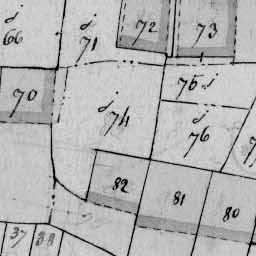 66
71
72
73
70
74
75
76
82
81
80
37
38